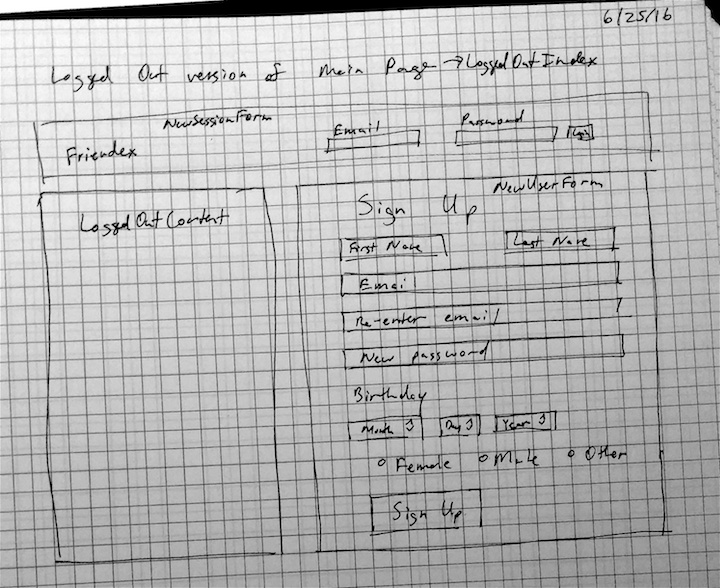 6/25/16
Logged Out version of Main Page → LoggedOutIndex
NewSessionForm
Friendex
Email
Password
Login
LoggedOutContent
NewUserForm
Sign Up
First Name
Last Name
Email
Re-enter email
New password
Birthday
Month Day Year
Female Male Other
Sign Up